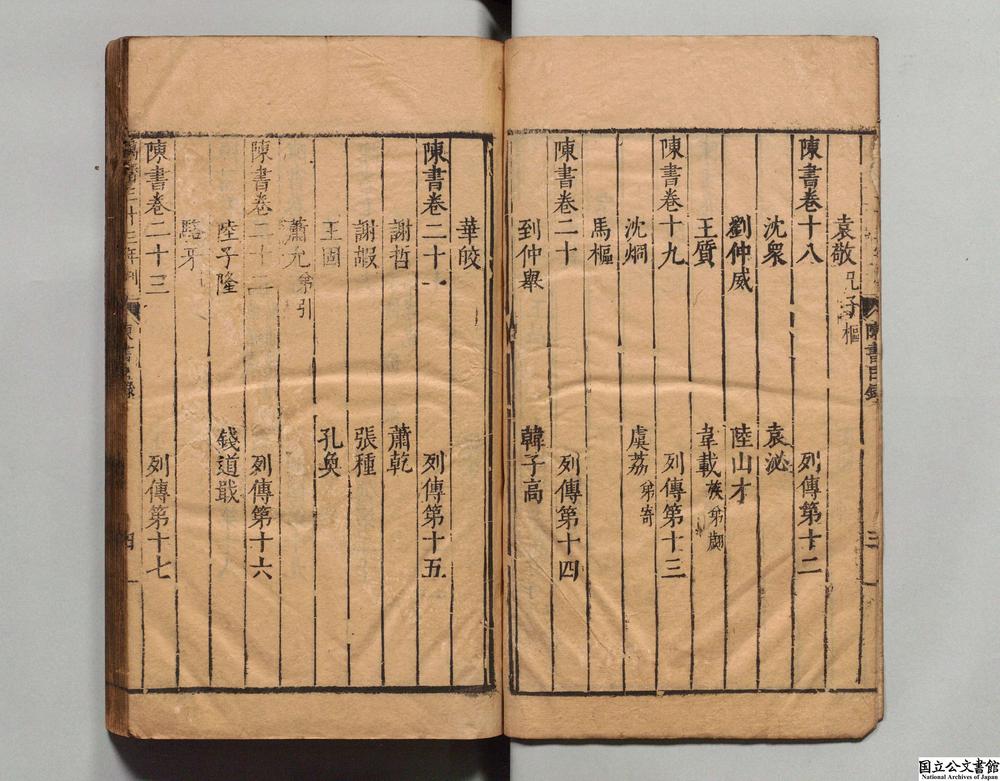 陳書目錄
三
袁敬 兄子樞
陳書卷十八 列傳第十二
沈衆 袁泌
劉仲威 陸山才
王質 韋載 族弟翽
陳書卷十九 列傳第十三
沈烱 虞荔 弟寄
馬樞
陳書卷二十 列傳第十四
到仲舉 韓子高
華皎
陳書卷二十一 列傳第十五
謝哲 蕭乾
謝嘏 張種
王固 孔奐
蕭允 弟引
陳書卷二十二 列傳第十六
陸子隆 錢道戢
駱牙
陳書卷二十三 列傳第十七
陳書目錄
四
国立公文書館
National Archives of Japan